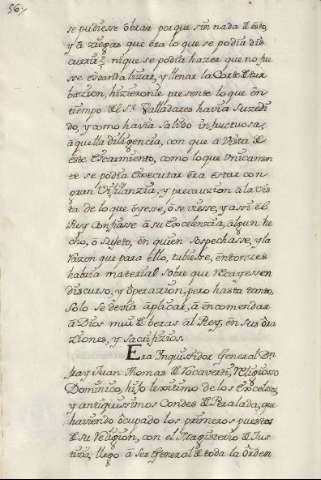 567
se pudiesse obrar, porque sin nada de esto,
y â riesgo, que era lo que se podia dis
currir, ni que se podia hazer que no fu
esse escandalizar, y llenar la Corte de tur
bazion, hizieronle presente lo que en
tiempo de el Sr. Valladares havia suzedi
do, y como havia salido infructuosa,
aquella diligencia, con que a vista de
este Escarmiento, como lo que unicamen
te se podia executar era estar con
gran vigilanzia, y precauzion â la vis
ta de lo que oyese, ô se viesse, y assi el
Rey confiasse â su Excelencia, algun he
cho, ô sujeto, en quien sospechasse, y la
razon que para ello, tubiese, entonzes
habria material sobre que recayessen
discurso, y operazion, pero hasta tanto
solo se devia aplicar, â encomendar
â Dios mui de beras al Rey, en sus ora
ziones, y sacrifizios.
Era Inquisidor General Dn.
fray Juan Thomas de Rocaverti, Religioso
Dominico, hijo lexitimo de los Excelsos,
y antiquissimos Condes de Peralada, que
haviendo ôcupado los primeros puestos
de su Religion, con el Magisterio de Jus
ticia, llegó a ser General de toda la Orden